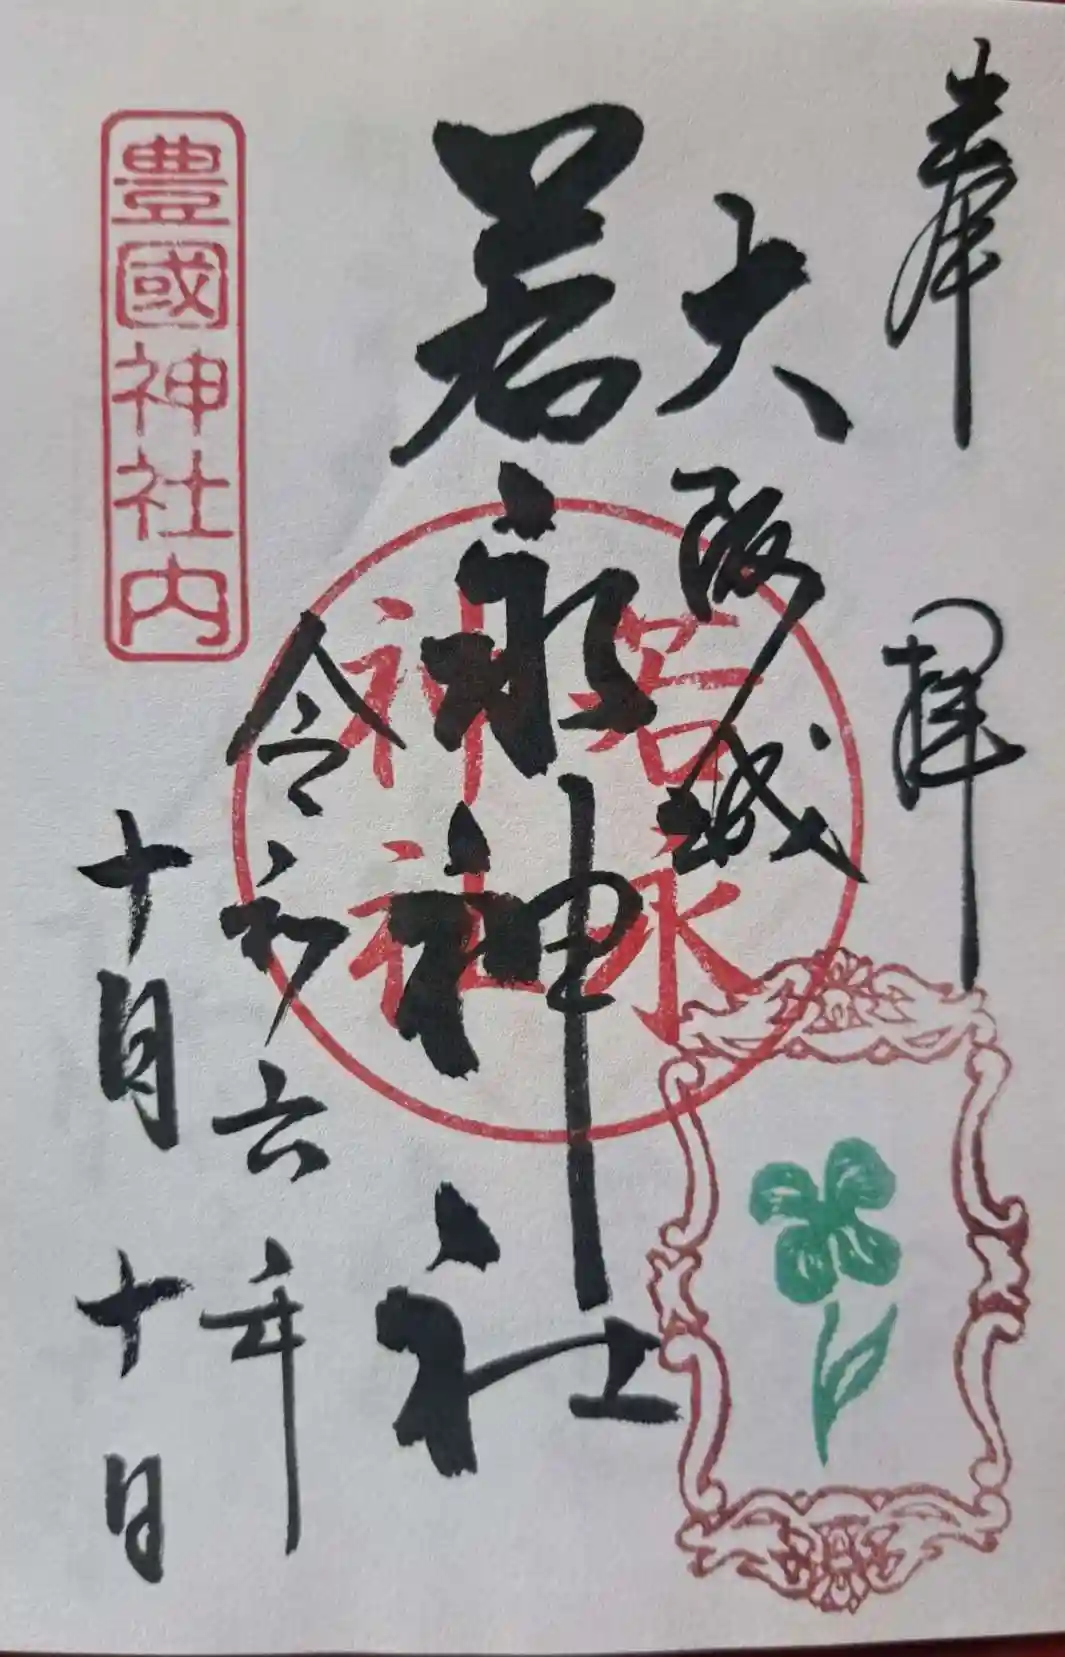 奉拝
大阪城
若永神社
若永
神社
令和六年
十月十日
豊國神社内